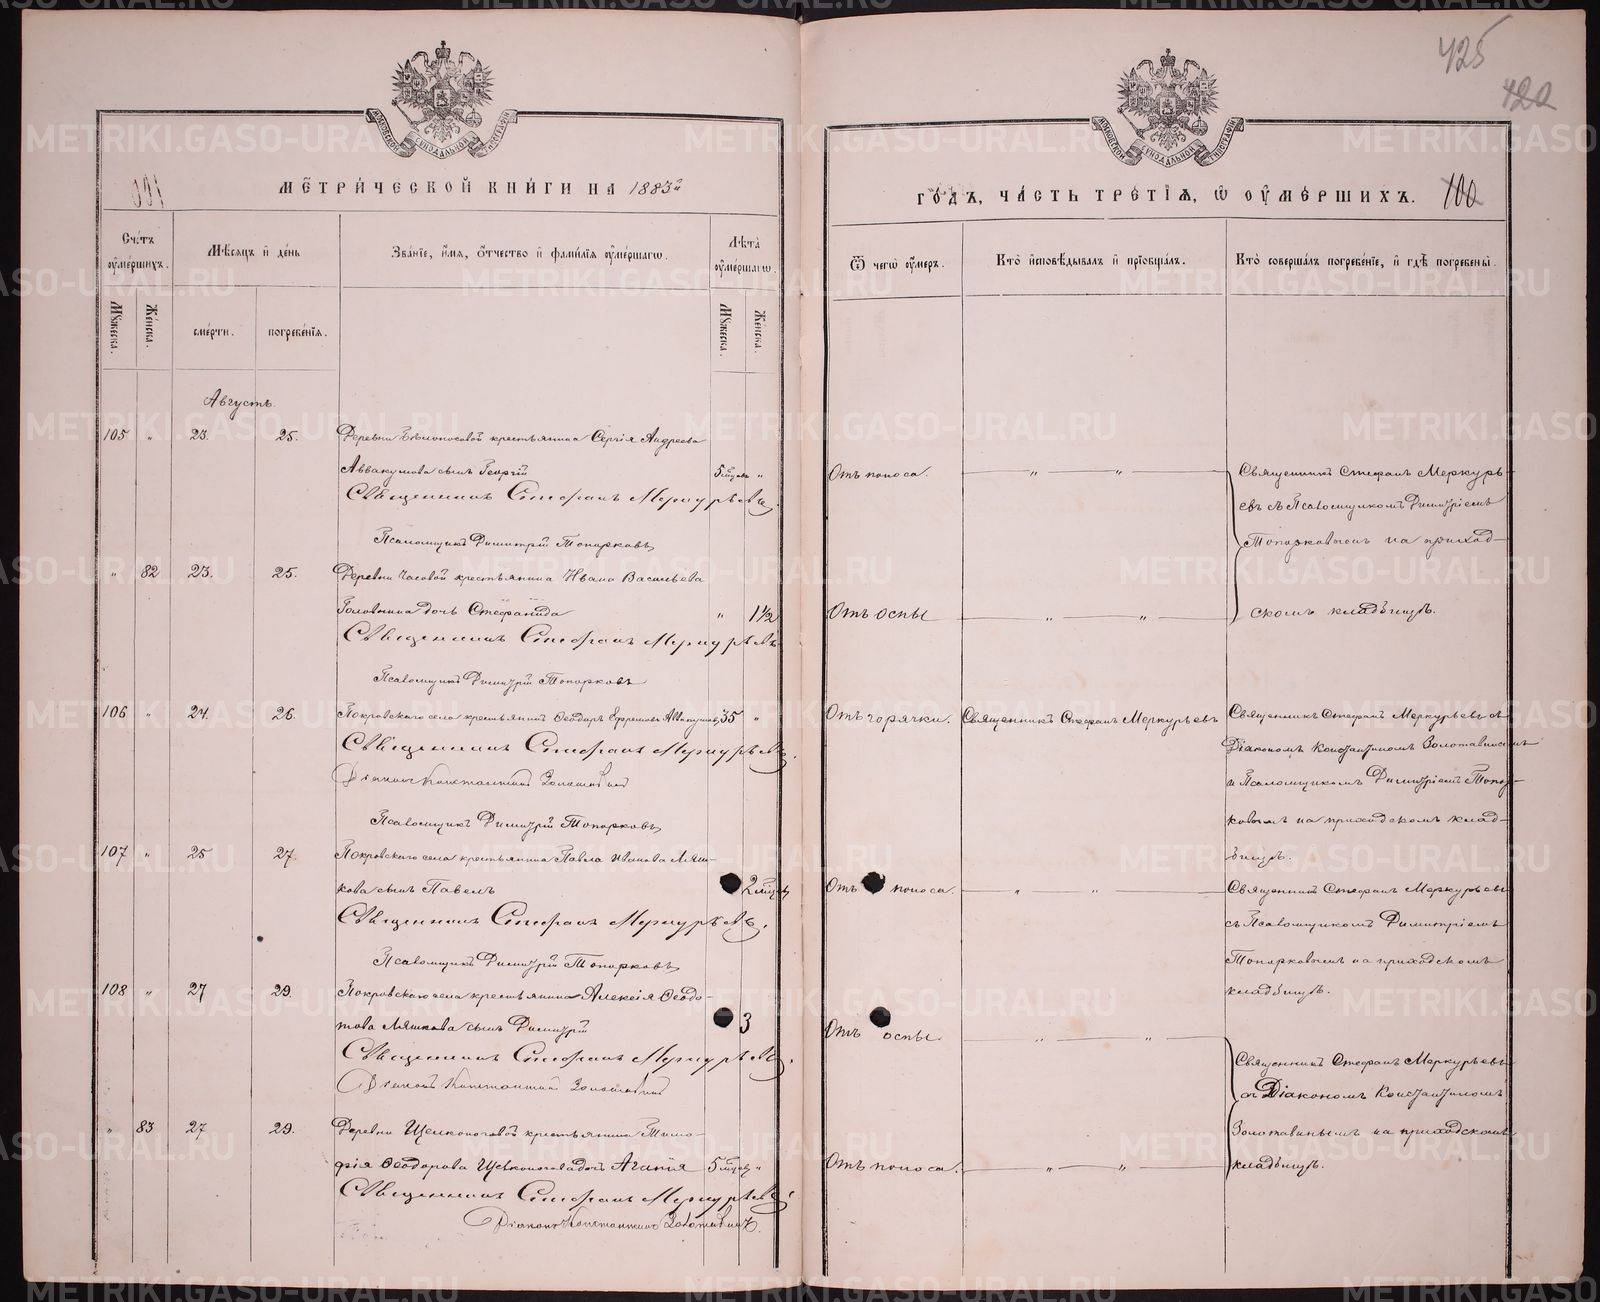 425
420
МОСКОВСКОЙ СѴНОДАЛЬНОЙ ТИПОГРАФІИ
МОСКОВСКОЙ СѴНОДАЛЬНОЙ ТИПОГРАФІИ
МЕТРИЧЕСКОЙ КНИГИ НА 1883й
ГОДЪ, ЧАСТЬ ТРЕТІЯ, Ѡ ОУМЕРШИХЪ. 100
Счетъ оумершихъ.
Мѣсяцъ и день
Званіе, имя, отчество и фамилія оумершагѡ.
Лѣта оумершагѡ.
Ѿ чегѡ оумеръ.
Кто исповѣдывалъ и пріобщалъ.
Кто совершалъ погребеніе, и гдѣ погребены.
Мꙋжеска. Женска. смерти. погребенія. Мꙋжеска. Женска.
Августъ.
105 " 23. 25. Деревни Бѣлоносовой крестьянина Сергія Андреева
Аввакумова сынъ Георгій 5 мцевъ "
Отъ поноса. " "
Священникъ Стефанъ Меркурьевъ.
Псаломщикъ Димитрій Топорковъ
Священникъ Стефанъ Меркурь-
евъ съ Псаломщикомъ Димитріемъ
Топорковымъ на приход-
скомъ кладбищѣ.
" 82 23. 25. Деревни Часовой крестьянина Ивана Васильева
Головнина дочь Стефанида " 1½
Отъ оспы " "
Священникъ Стефанъ Меркурьевъ
Псаломщикъ Димитрій Топорковъ
106 " 24. 26. Покровскаго села крестьянинъ Ѳеодоръ Ефремовъ Аввакумовъ 35 "
Отъ горячки. Священникъ Стефанъ Меркурьевъ
Священникъ Стефанъ Меркурьевъ.
Діаконъ Константинъ Золотавинъ
Псаломщикъ Димитрій Топорковъ
Священникъ Стефанъ Меркурьевъ съ
Діакономъ Константиномъ Золотавинымъ
и Псаломщикомъ Димитріемъ Топор-
ковымъ на приходскомъ клад-
бищѣ.
107 " 25 27. Покровскаго села крестьянина Павла Иванова Ляш-
кова сынъ Павелъ 2 мцевъ
Отъ поноса. " "
Священникъ Стефанъ Меркурьевъ.
Псаломщикъ Димитрій Топорковъ
Священникъ Стефанъ Меркурьевъ
съ Псаломщикомъ Димитріемъ
Топорковымъ на приходскомъ
кладбищѣ.
108 " 27 29. Покровскаго села крестьянина Алексія Ѳеодо-
това Ляшкова сынъ Димитрій 3
Отъ оспы. " "
Священникъ Стефанъ Меркурьевъ.
Діаконъ Константинъ Золотавинъ
Священникъ Стефанъ Меркурьевъ
съ Діакономъ Константиномъ
Золотавинымъ на приходскомъ
кладбищѣ.
" 83 27 29. Деревни Щелконоговой крестьянина Тимо-
фія Ѳеодорова Щелконогова дочь Агапія 5 мцевъ "
Отъ поноса. " "
Священникъ Стефанъ Меркурьевъ.
Діаконъ Константинъ Золотавинъ.
METRIKI.GASO-URAL.RU